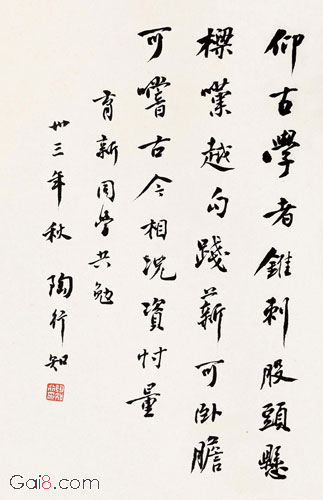 仰古學者錐刺股頭懸
樑嘆越勾踐薪可卧膽
可嚐古今相況資忖量
育新同學共勉
卅三年秋 陶行知
Gai8.com